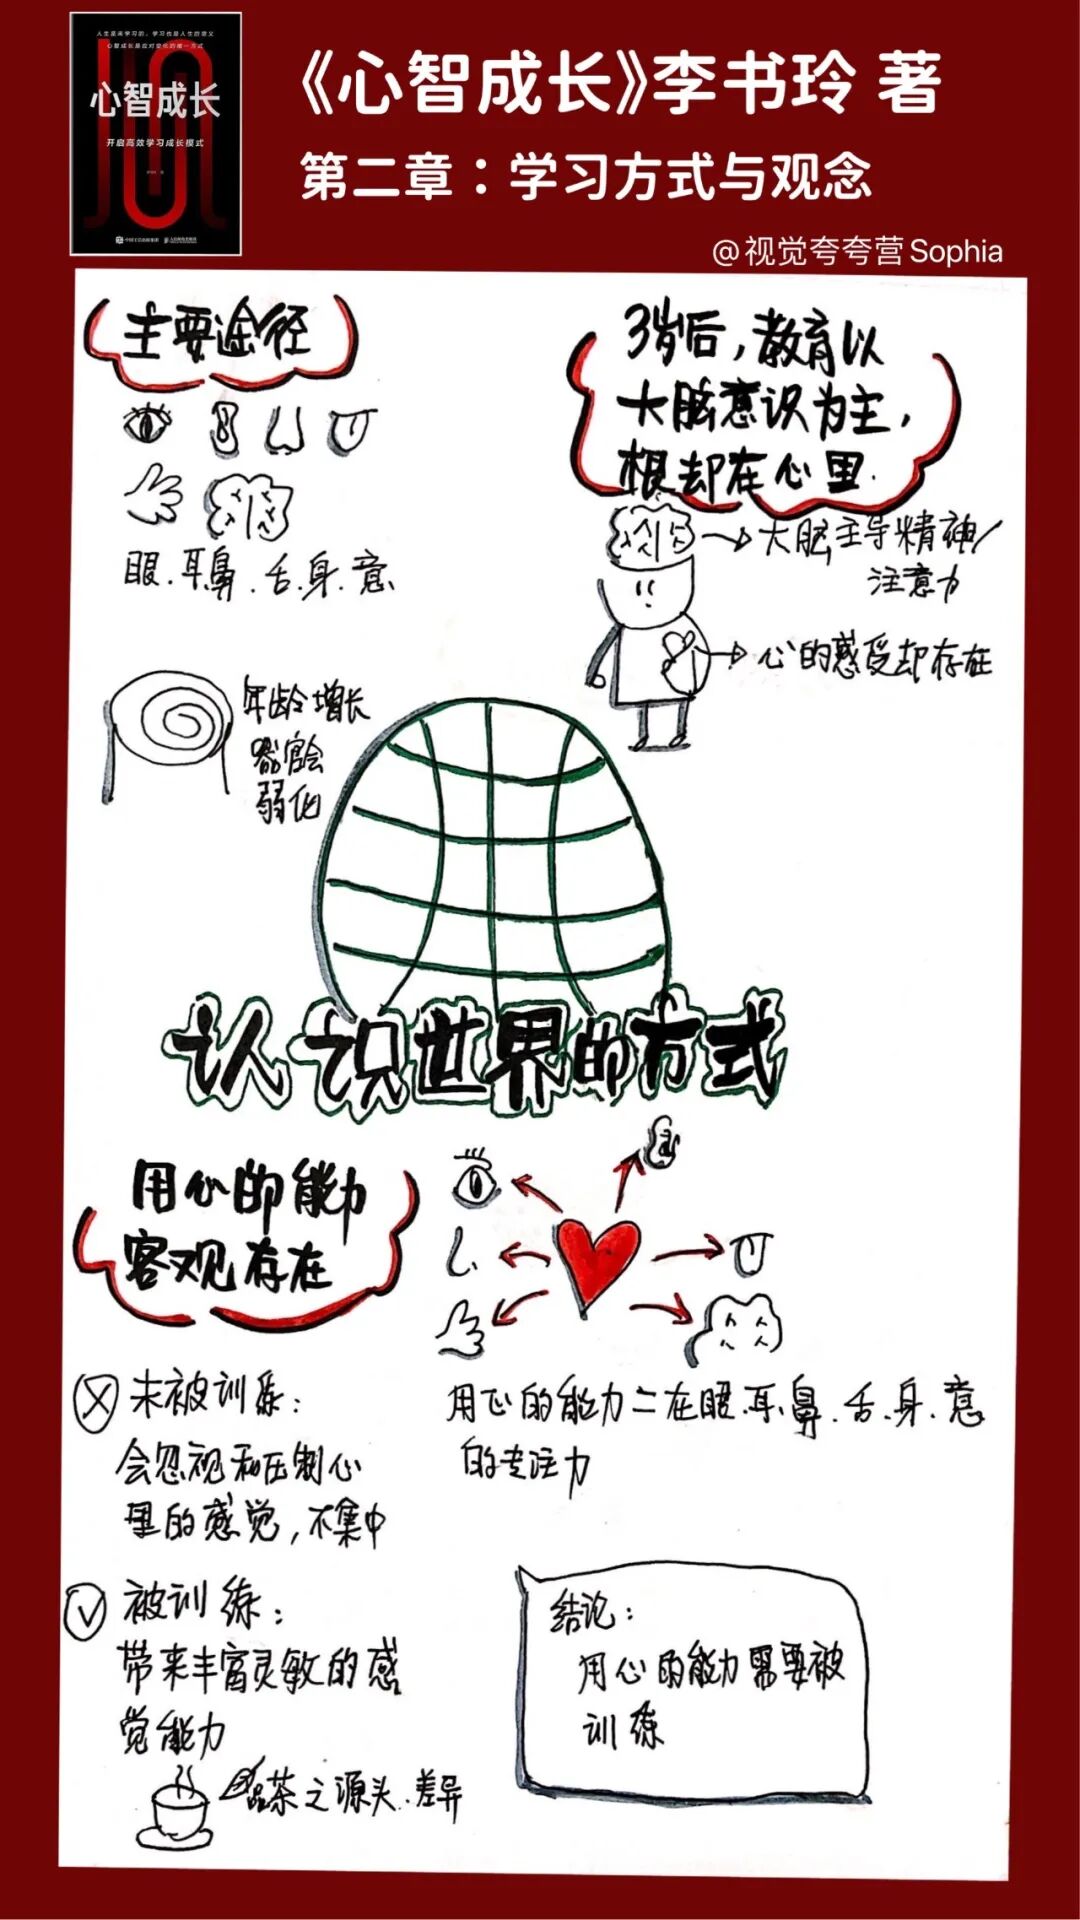 人生是来学习的，学习也是人生的意义
心智成长是应对变化的唯一方式
心智成长
开启高效学习成长模式
《心智成长》李书玲 著
第二章：学习方式与观念
@视觉夸夸营Sophia
主要途径
眼.耳.鼻.舌.身.意
3岁后，教育以
大脑意识为主，
根却在心里.
大脑主导精神/
注意力
心的感受却存在
年龄增长
器官会
弱化
认识世界的方式
用心的能力
客观存在
用心的能力=在眼.耳.鼻.舌.身.意
的专注力
未被训练：
会忽视和压制心
里的感觉，不集中
被训练：
带来丰富灵敏的感
觉能力
品茶之源头.差异
结论：
用心的能力需要被
训练